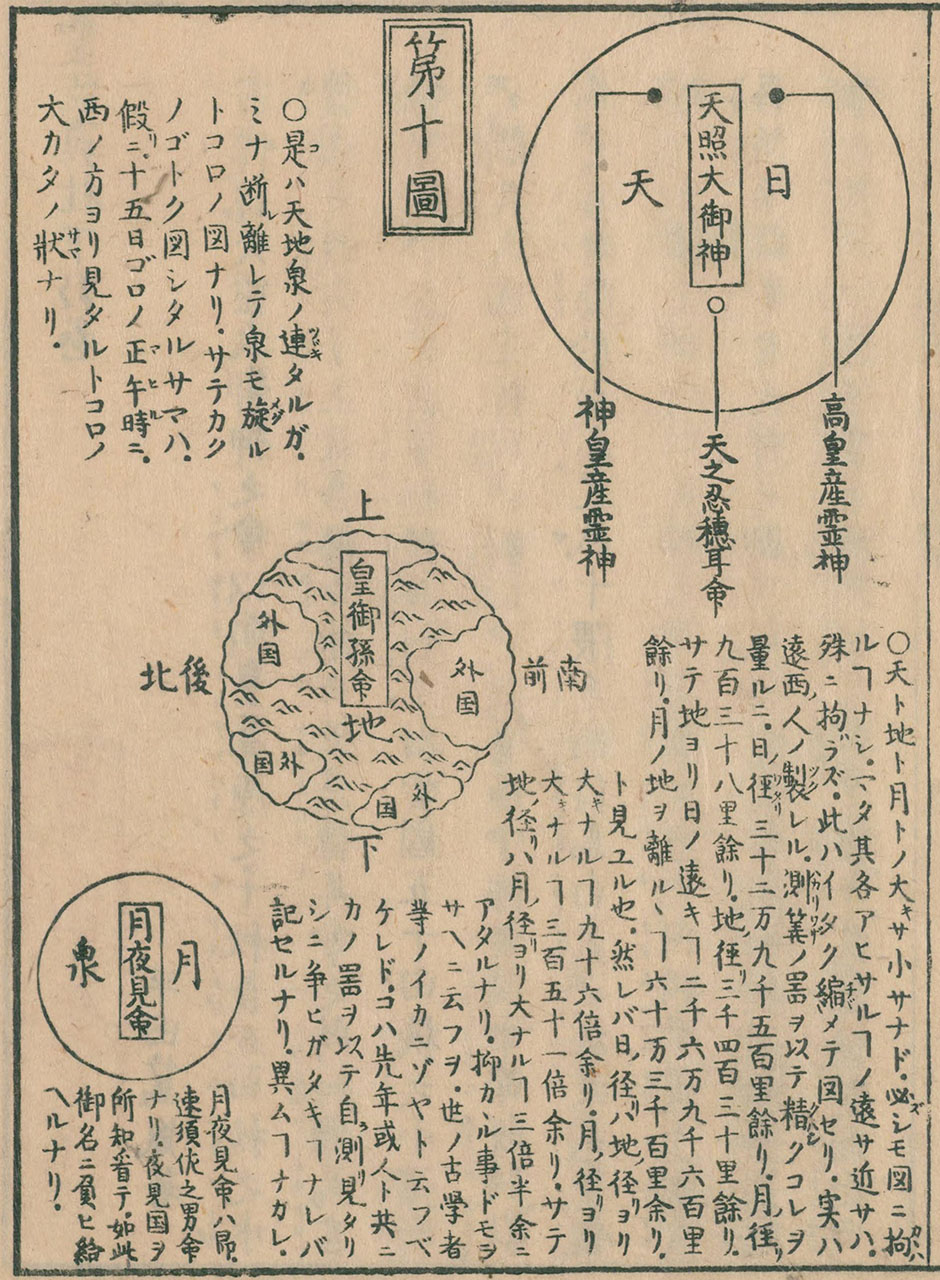 第十圖
日
天照大御神
天
高皇産霊神
天之忍穂耳命
神皇産霊神
〇是ハ天地泉ノ連タルガ。
ミナ断離レテ泉モ旋ル
トコロノ図ナリ。サテカク
ノゴトク図シタルサマハ。
假ニ。十五日ゴロノ正午時ニ。
西ノ方ヨリ見タルトコロノ
大カタノ狀ナリ。
上
皇御孫命
地
外国
外国
外国
外国
前南
北後
下
〇天ト地ト月トノ大キサ小サナド。必シモ図ニ拘
ルヿナシ。マタ其各アヒサルヿノ遠サ近サハ。
殊ニ拘ラズ。此ハイタク縮メテ図セリ。実ハ
遠西ノ人ノ製レル。測筭ノ器ヲ以テ精クコレヲ
量ルニ。日ノ徑リ三十二万九千五百里餘リ。月ノ徑リ
九百三十八里餘リ。地ノ徑リ三千四百三十里餘リ。
サテ地ヨリ日ノ遠キヿ二千六万九千六百里
餘リ。月ノ地ヲ離ルヽヿ六十万三千百里余リ。
ト見ユル也。然レバ日ノ径リハ地ノ径リヨリ
大キナルヿ九十六倍余リ。月ノ径リヨリ
大キナルヿ三百五十一倍余リ。サテ
地ノ径リハ月ノ径リヨリ大ナルヿ三倍半余ニ
アタルナリ。抑カヽル事ドモヲ
サヘニ云フヲ。世ノ古學者
等ノイカニゾヤト云フベ
ケレド。コハ先年或人ト共ニ
カノ器ヲ以テ自測リ見タリ
シニ争ヒガタキヿナレバ
記セルナリ。異ムヿナカレ。
月
月夜見命
泉
月夜見命ハ即
速須佐之男命
ナリ。夜見国ヲ
所知看テ。如此
御名ニ負ヒ給
ヘルナリ。